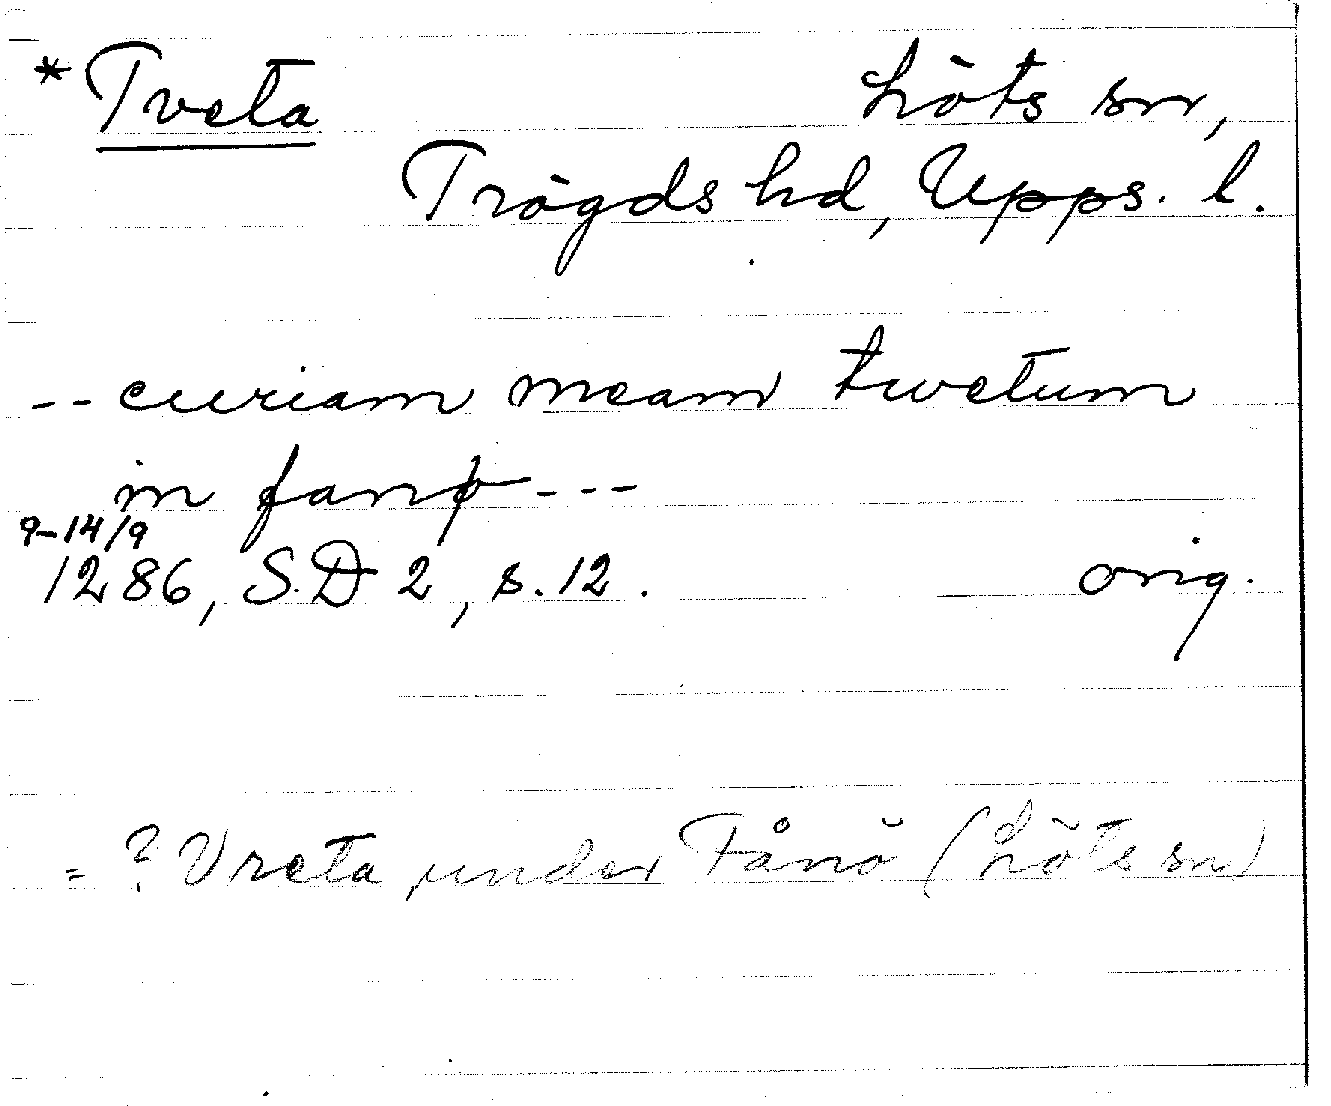 *Tveta Löts sn,
Trögds hd, Upps. l.
-- curiam meam twetum
in fanø ---
9-14/9
1286, S.D 2, s. 12. orig.
= ? Vreta under Fånö (Löts sn)